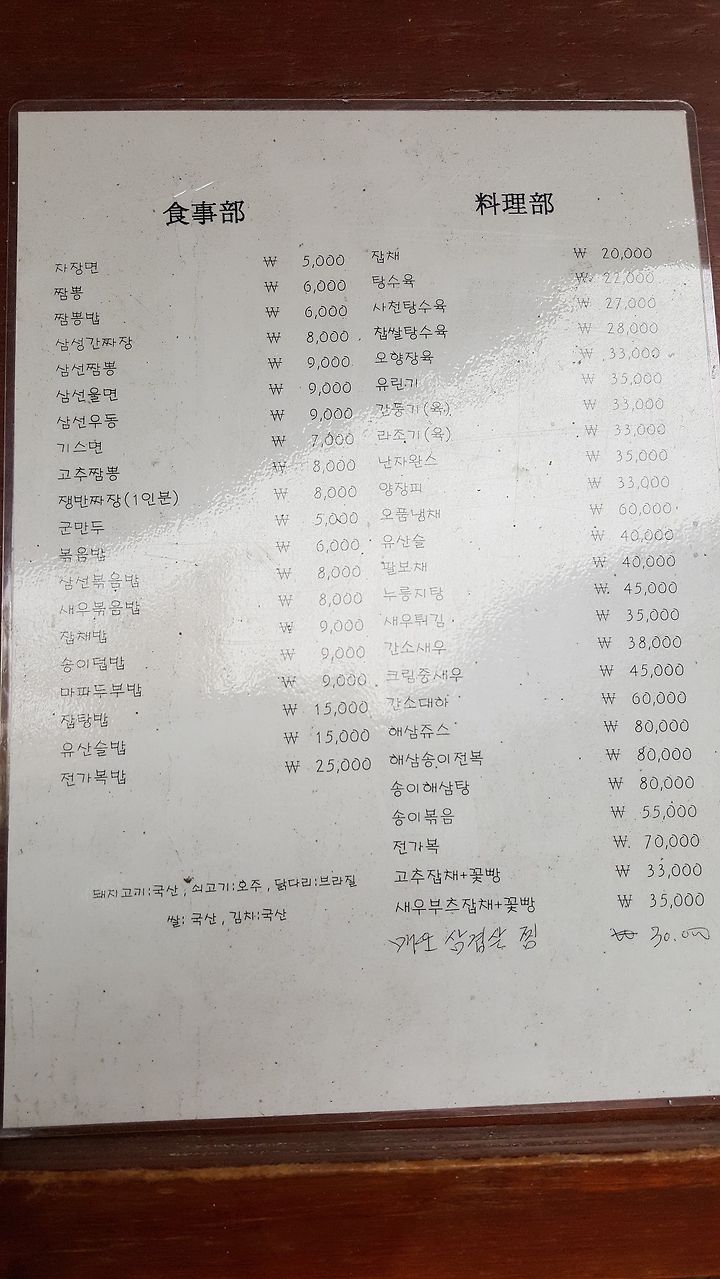 食事部
자장면 ₩ 5,000
짬뽕 ₩ 6,000
짬뽕밥 ₩ 6,000
삼성간짜장 ₩ 8,000
삼선짬뽕 ₩ 9,000
삼선울면 ₩ 9,000
삼선우동 ₩ 9,000
기스면 ₩ 7,000
고추짬뽕 ₩ 8,000
쟁반짜장(1인분) ₩ 8,000
군만두 ₩ 5,000
볶음밥 ₩ 6,000
삼선볶음밥 ₩ 8,000
새우볶음밥 ₩ 8,000
잡채밥 ₩ 9,000
송이덥밥 ₩ 9,000
마파두부밥 ₩ 9,000
잡탕밥 ₩ 15,000
유산슬밥 ₩ 15,000
전가복밥 ₩ 25,000
돼지고기:국산, 쇠고기:호주, 닭다리:브라질
쌀: 국산, 김치:국산
料理部
잡채 ₩ 20,000
탕수육 ₩ 22,000
사천탕수육 ₩ 27,000
찹쌀탕수육 ₩ 28,000
오향장육 ₩ 33,000
유린기 ₩ 35,000
깐풍기(육) ₩ 33,000
라조기(육) ₩ 33,000
난자완스 ₩ 35,000
양장피 ₩ 33,000
오품냉채 ₩ 60,000
유산슬 ₩ 40,000
팔보채 ₩ 40,000
누룽지탕 ₩ 45,000
새우튀김 ₩ 35,000
간소새우 ₩ 38,000
크림중새우 ₩ 45,000
간소대하 ₩ 60,000
해삼쥬스 ₩ 80,000
해삼송이전복 ₩ 80,000
송이해삼탕 ₩ 80,000
송이볶음 ₩ 55,000
전가복 ₩ 70,000
고추잡채+꽃빵 ₩ 33,000
새우부추잡채+꽃빵 ₩ 35,000
삼겹살 찜 ₩ 30.000